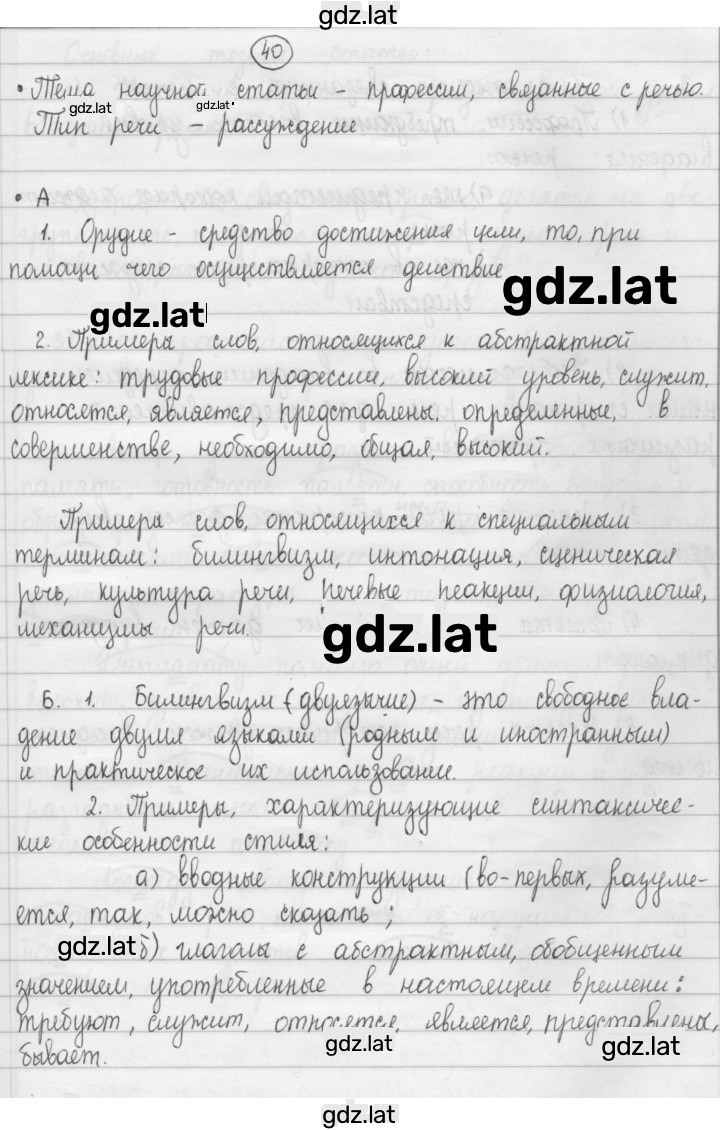 gdz.lat
40
• Тема научной статьи - профессии, связанные с речью.
gdz.lat gdz.lat
Тип речи - рассуждение
• А
1. Орудие - средство достижения цели, то, при
помощи чего осуществляется действие
gdz.lat
gdz.lat
2. Примеры слов, относящихся к абстрактной
лексике: трудовые профессии, высокий уровень, служит,
относятся, является, представлены, определенные, в
совершенстве, необходимо, общая, высокий.
Примеры слов, относящихся к специальным
терминам: билингвизм, интонация, сценическая
речь, культура речи, речевые реакции, физиология,
механизмы речи.
gdz.lat
Б. 1. Билингвизм (двуязычие) - это свободное вла-
дение двумя языками (родным и иностранным)
и практическое их использование.
2. Примеры, характеризующие синтаксичес-
кие особенности стиля:
а) вводные конструкции (во-первых, разуме-
ется, так, можно сказать;
gdz.lat б) глаголы с абстрактным, обобщенным
значением, употребленные в настоящем времени:
требуют, служит, относятся, является, представлены,
бывает.
gdz.lat
gdz.lat
gdz.lat